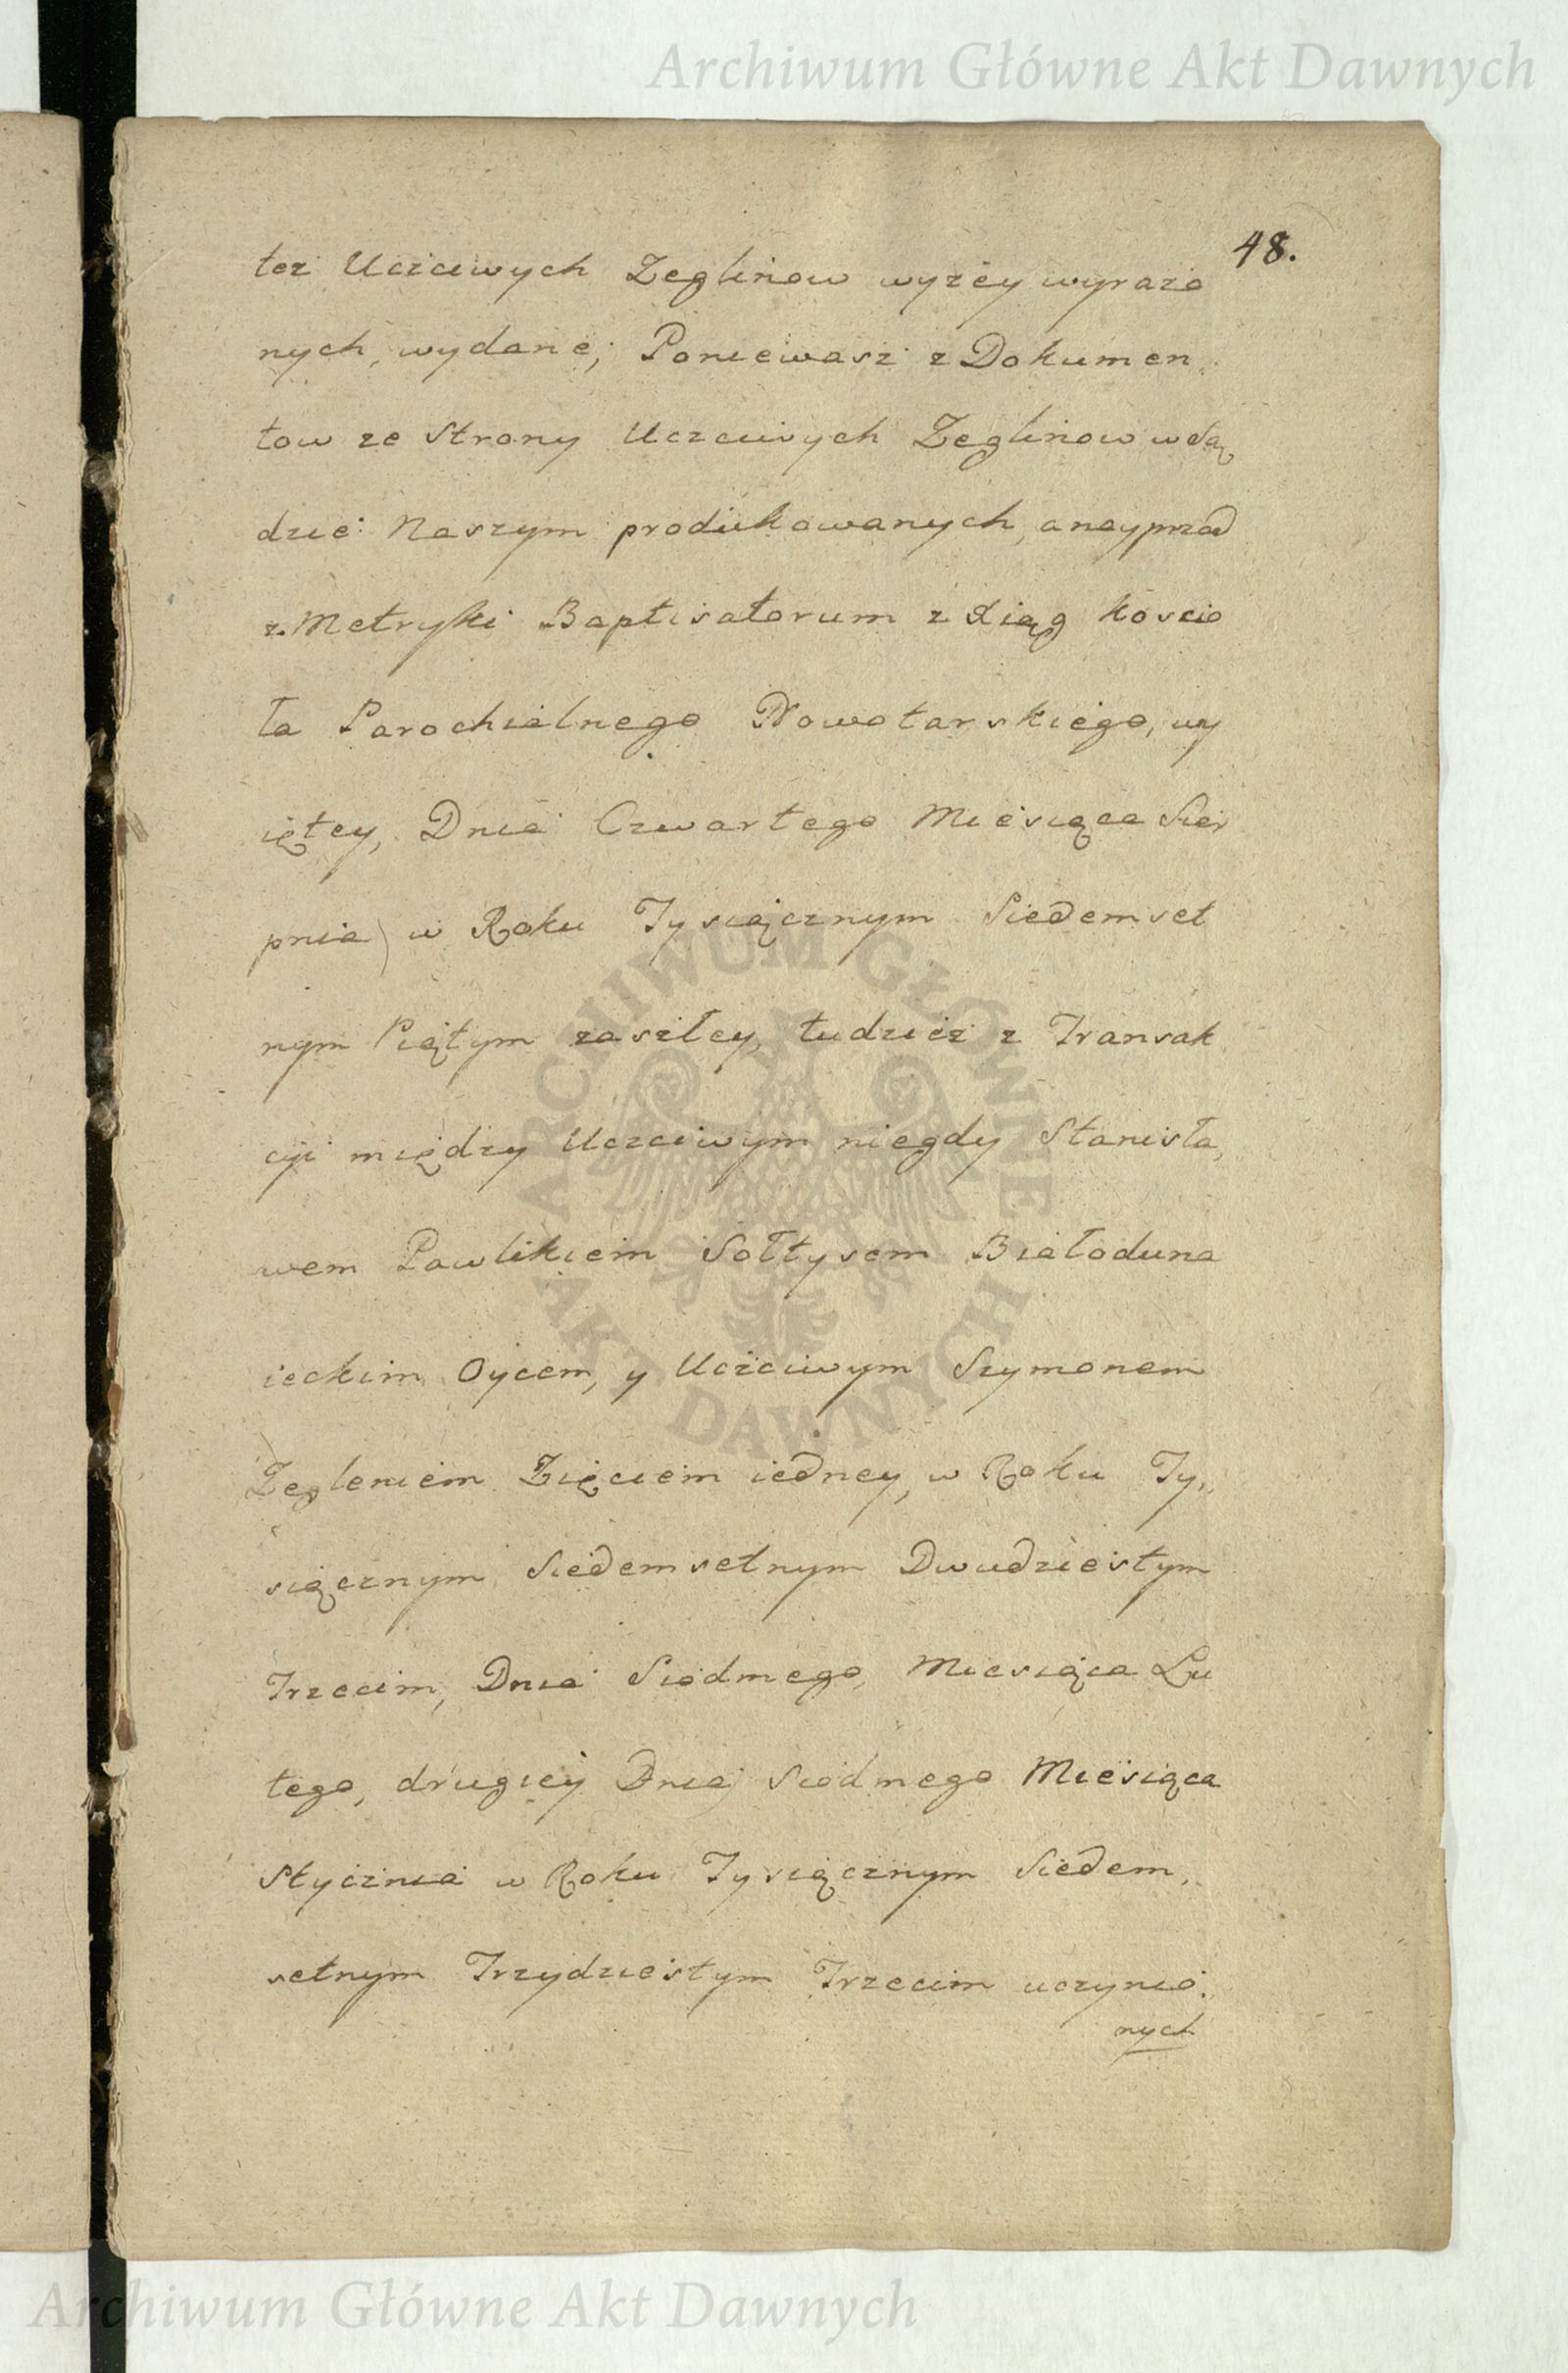 Archiwum Główne Akt Dawnych
48.
też Uczciwych Zeglinow wyżey wyrażo
nych, wydane; Poniewasz z Dokumen
tow ze strony Uczciwych Zeglinow w Są
dzie Naszym produkowanych, a nayprzod
z Metryki Baptisatorum z Xiąg Koscio
ła Parochialnego Nowotarskiego, wy
iętey, Dnia Czwartego Miesiąca Sier
pnia w Roku Tysiącznym Siedemset
nym Piątym zaszłey, tudziez z Transak
cyi między Uczciwym niegdy Stanisła,
wem Pawlikiem Sołtysem Białoduna
ieckim Oycem, y Uczciwym Szymonem
Zegleniem Zięciem iedney, w Roku Ty,,
siącznym Siedemsetnym Dwudziestym
Trzecim, Dnia Siodmego, Miesiąca Lu
tego, drugiey Dnia Siodmego Miesiąca
Stycznia w Roku Tysiącznym Siedem,
setnym Trzydziestym Trzecim uczynio:
nych
ARCHIWUM GŁÓWNE
AKT DAWNYCH
Archiwum Główne Akt Dawnych